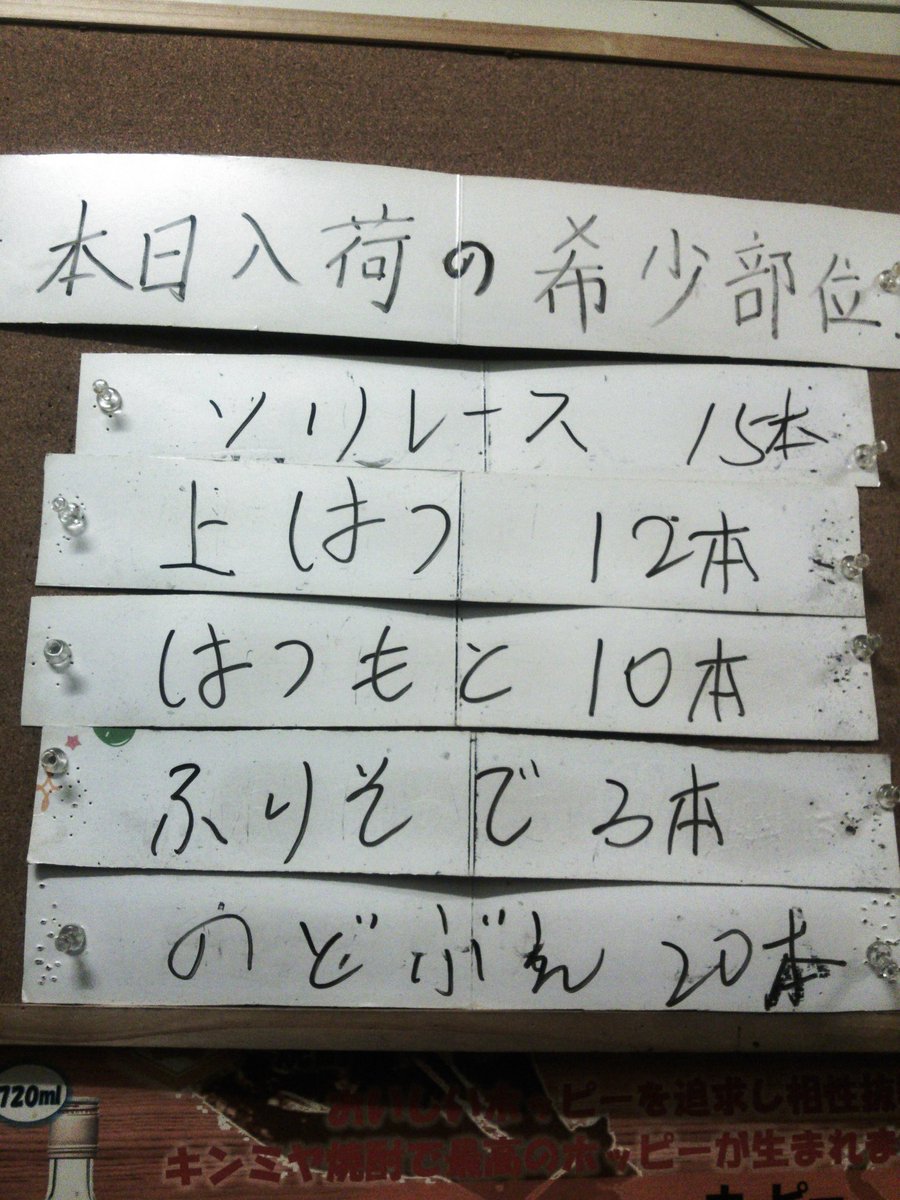 本日入荷の希少部位
ソリレース 15本
上はつ 12本
はつもと 10本
ふりそで 3本
のどぶえ 20本
720ml
おいしいホッピーを追求し相性抜
キンミヤ焼酎で最高のホッピーが生まれま